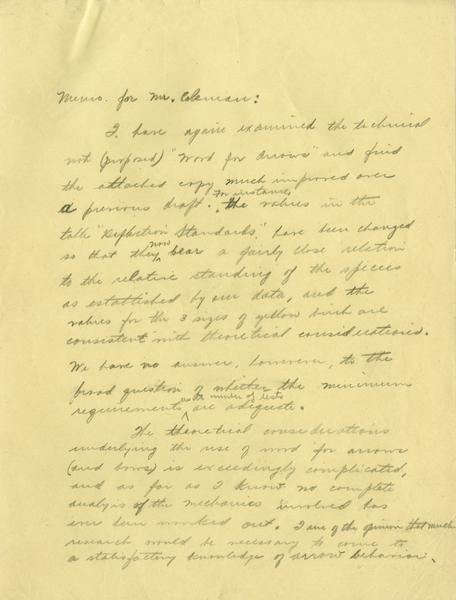 Memo. for Mr. Coleman:
I have again examined the technical
note (proposed) "Wood for Arrows" and find
the attached copy much improved over
a previous draft. For instance, the values in the
table "Deflection Standards," have been changed
so that they now bear a fairly close relation
to the relative standing of the species
as established by our data, and the
values for the 3 sizes of yellow birch are
consistent with theoretical considerations.
We have no answer, however, to the
broad question of whether the minimum
requirements as to number of tests are adequate.
The theoretical considerations
underlying the use of wood for arrows
(and bows) is exceedingly complicated,
and as far as I know no complete
analysis of the mechanics involved has
ever been worked out. I am of the opinion that much
research would be necessary to come to
a satisfactory knowledge of arrow behavior.